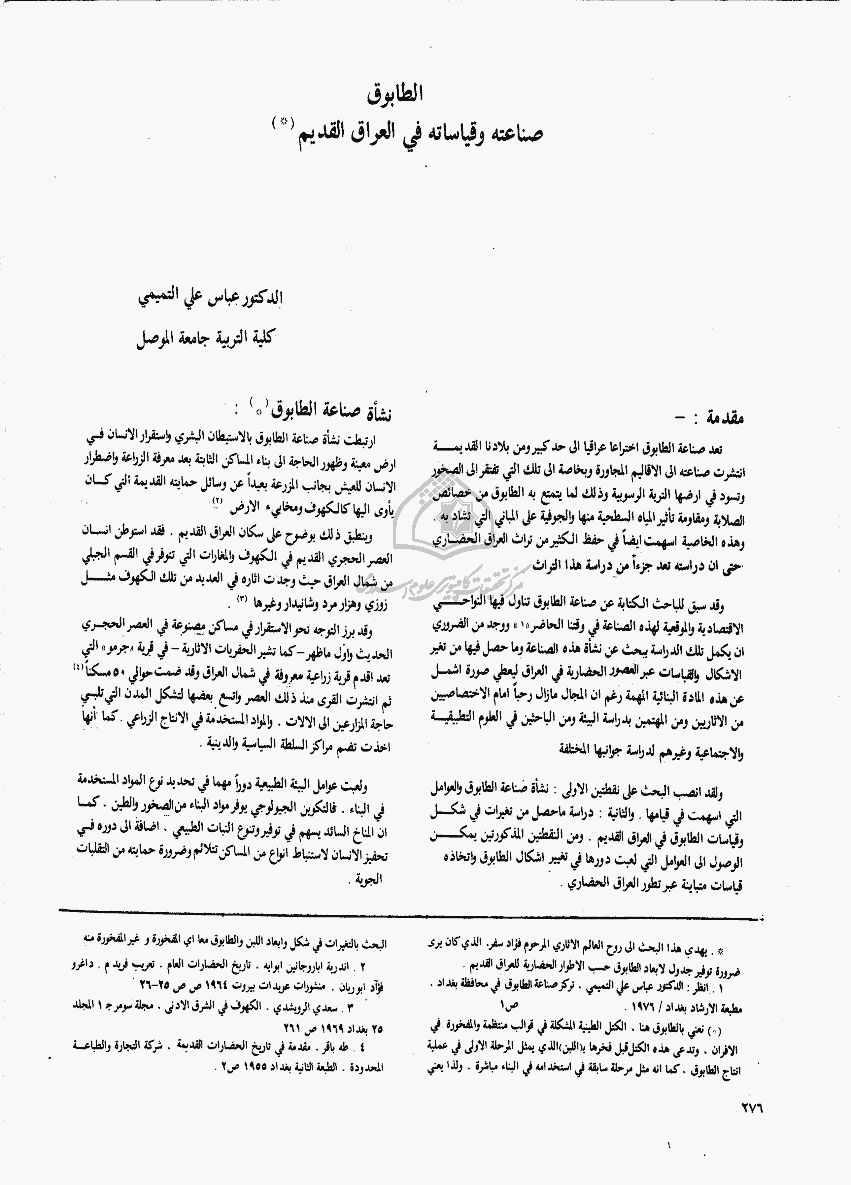 الطابوق
صناعته وقياساته في العراق القديم (*)
الدكتور عباس علي التميمي
كلية التربية جامعة الموصل
مقدمة : –
تعد صناعة الطابوق اختراعا عراقيا الى حد كبير ومن بلادنا القديمـــة
انتشرت صناعته الى الاقاليم المجاورة وبخاصة الى تلك التي تفتقر الى الصخور
وتسود في ارضها التربة الرسوبية وذلك لما يتمتع به الطابوق من خصائص
الصلابة ومقاومة تأثير المياه السطحية منها والجوفية على المباني التي تشاد به .
وهذه الخاصية اسهمت ايضاً في حفظ الكثير من تراث العراق الحضـــاري
حتى ان دراسته تعد جزءاً من دراسة هذا التراث .
وقد سبق للباحث الكتابة عن صناعة الطابوق تناول فيها النواحـــي
الاقتصادية والموقعية لهذه الصناعة في وقتنا الحاضر «١» ووجد من الضروري
ان يكمل تلك الدراسة يبحث عن نشأة هذه الصناعة وما حصل فيها من تغير
الاشكال والقياسات عبر العصور الحضارية في العراق ليعطي صورة اشمـل
عن هذه المادة البنائية المهمة رغم ان المجال مازال رحباً امام الاختصاصيين
من الاثاريين ومن المهتمين بدراسة البيئة ومن الباحثين في العلوم التطبيقيـة
والاجتماعية وغيرهم لدراسة جوانبها المختلفة
ولقد انصب البحث على نقطتين الاولى : نشأة صناعة الطابوق والعوامل
التي اسهمت في قيامها . والثانية : دراسة ماحصل من تغيرات في شكـــل
وقياسات الطابوق في العراق القديم . ومن النقطتين المذكورتين يمكـــن
الوصول الى العوامل التي لعبت دورها في تغيير اشكال الطابوق واتخاذه
قياسات متباينة عبر تطور العراق الحضاري .
نشأة صناعة الطابوق (*) :
ارتبطت نشأة صناعة الطابوق بالاستيطان البشري واستقرار الانسان فــي
ارض معينة وظهور الحاجة الى بناء المساكن الثابتة بعد معرفة الزراعة واضطرار
الانسان للعيش بجانب المزرعة بعيداً عن وسائل حمايته القديمة التي كـــان
يأوى اليها كالكهوف ومخابيء الارض (٢)
وينطبق ذلك بوضوح على سكان العراق القديم . فقد استوطن انســان
العصر الحجري القديم في الكهوف والمغارات التي تتوفر في القسم الجبلي
من شمال العراق حيث وجدت اثاره في العديد من تلك الكهوف مثـــل
زوزي وهزار مرد وشانيدار وغيرها (٣) .
وقد برز التوجه نحو الاستقرار في مساكن مصنوعة في العصر الحجـري
الحديث واول ماظهر – كما تشير الحفريات الاثارية – في قرية «جرمو» التي
تعد اقدم قرية زراعية معروفة في شمال العراق وقد ضمت حوالي ٥٠ مسكناً (٤)
ثم انتشرت القرى منذ ذلك العصر واتسع بعضها لتشكل المدن التي تلبــي
حاجة المزارعين الى الالات . والمواد المستخدمة في الانتاج الزراعي . كما أنها
اخذت تضم مراكز السلطة السياسية والدينية .
ولعبت عوامل البيئة الطبيعية دوراً مهما في تحديد نوع المواد المستخدمة
في البناء . فالتكوين الجيولوجي يوفر مواد البناء من الصخور والطين . كمـا
ان المناخ السائد يسهم في توفير وتنوع النبات الطبيعي . اضافة الى دوره فـي
تحفيز الانسان لاستنباط انواع من المساكن تتلائم وضرورة حمايته من التقلبات
الجوية .
* . يهدي هذا البحث الى روح العالم الاثاري المرحوم فؤاد سفر. الذي كان يرى
ضرورة توفير جدول لابعاد الطابوق حسب الاطوار الحضارية للعراق القديم .
١ . انظر : الدكتور عباس علي التميمي . تركز صناعة الطابوق في محافظة بغداد .
مطبعة الارشاد بغداد / ١٩٧٦ . ص١
(*) نعني بالطابوق هنا . الكتل الطينية المشكلة في قوالب منتظمة والمفخورة في
الافران . وتدعى هذه الكتل قبل فخرها بـ(اللبن)الذي يمثل المرحلة الاولى في عملية
انتاج الطابوق . كما انه مثل مرحلة سابقة في استخدامه في البناء مباشرة . ولذا يعني
البحث بالتغيرات في شكل وابعاد اللبن والطابوق معا اي المفخورة و غير المفخورة منه
٢ . اندرية ايباروجانين ابوايه . تاريخ الحضارات العام . تعريب فريد م . داغر و
فؤاد ابوريان . منشورات عويدات بيروت ١٩٦٤ ص ص ٢٥-٢٦
٣ . سعدي الرويشدي . الكهوف في الشرق الادنى . مجلة سومر ج ١ المجلد
٢٥ بغداد ١٩٦٩ ص ٢٦١
٤ . طه باقر . مقدمة في تاريخ الحضارات القديمة . شركة التجارة والطباعــة
المحدودة . الطبعة الثانية بغداد ١٩٥٥ ص٢ .
٢٧٦